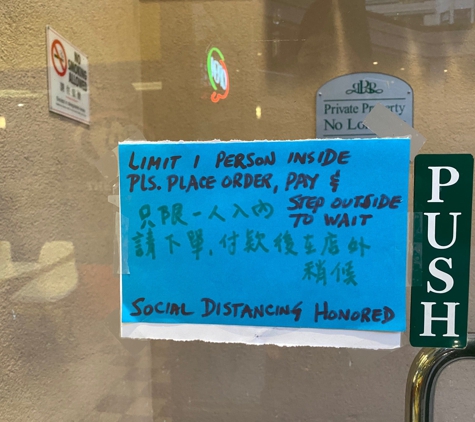 NO
SMOKING
ALLOWED
Private Property
PUSH
LIMIT 1 PERSON INSIDE
PLS. PLACE ORDER, PAY &
STEP OUTSIDE
TO WAIT
只限一人入內
請下單,付款後在店外
稍候
SOCIAL DISTANCING HONORED